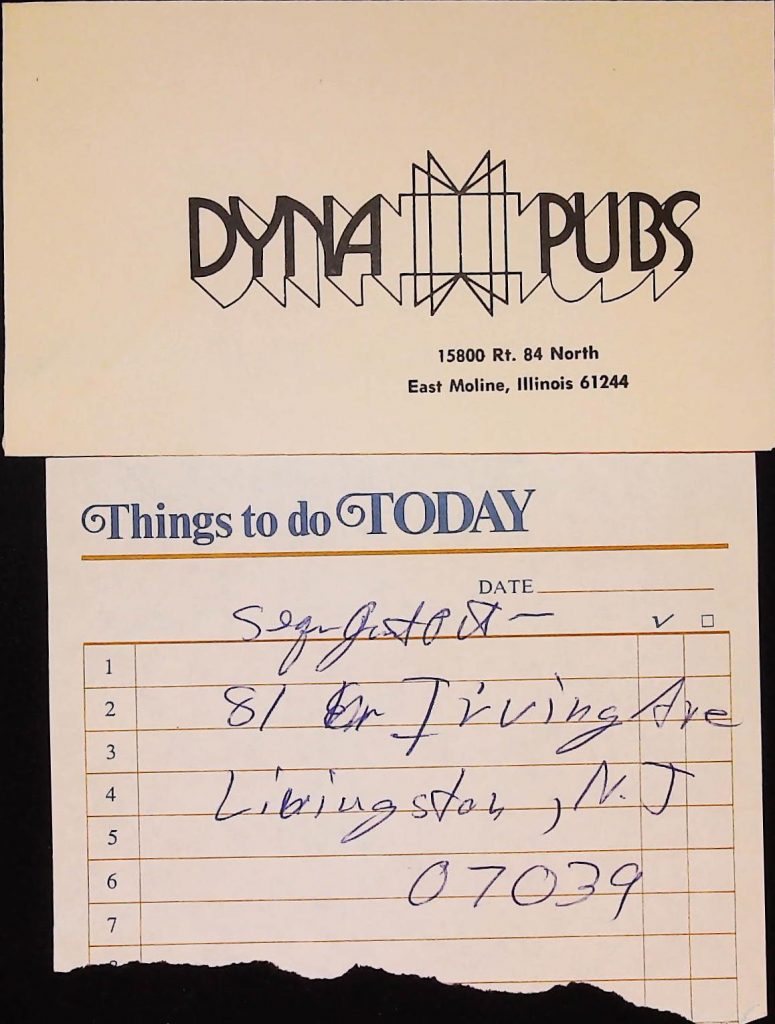 DYNA PUBS
15800 Rt. 84 North
East Moline, Illinois 61244
Things to do TODAY
DATE
1
2 81 Irving Ave
3
4 Livingston, N.J
5
6 07039
7
8